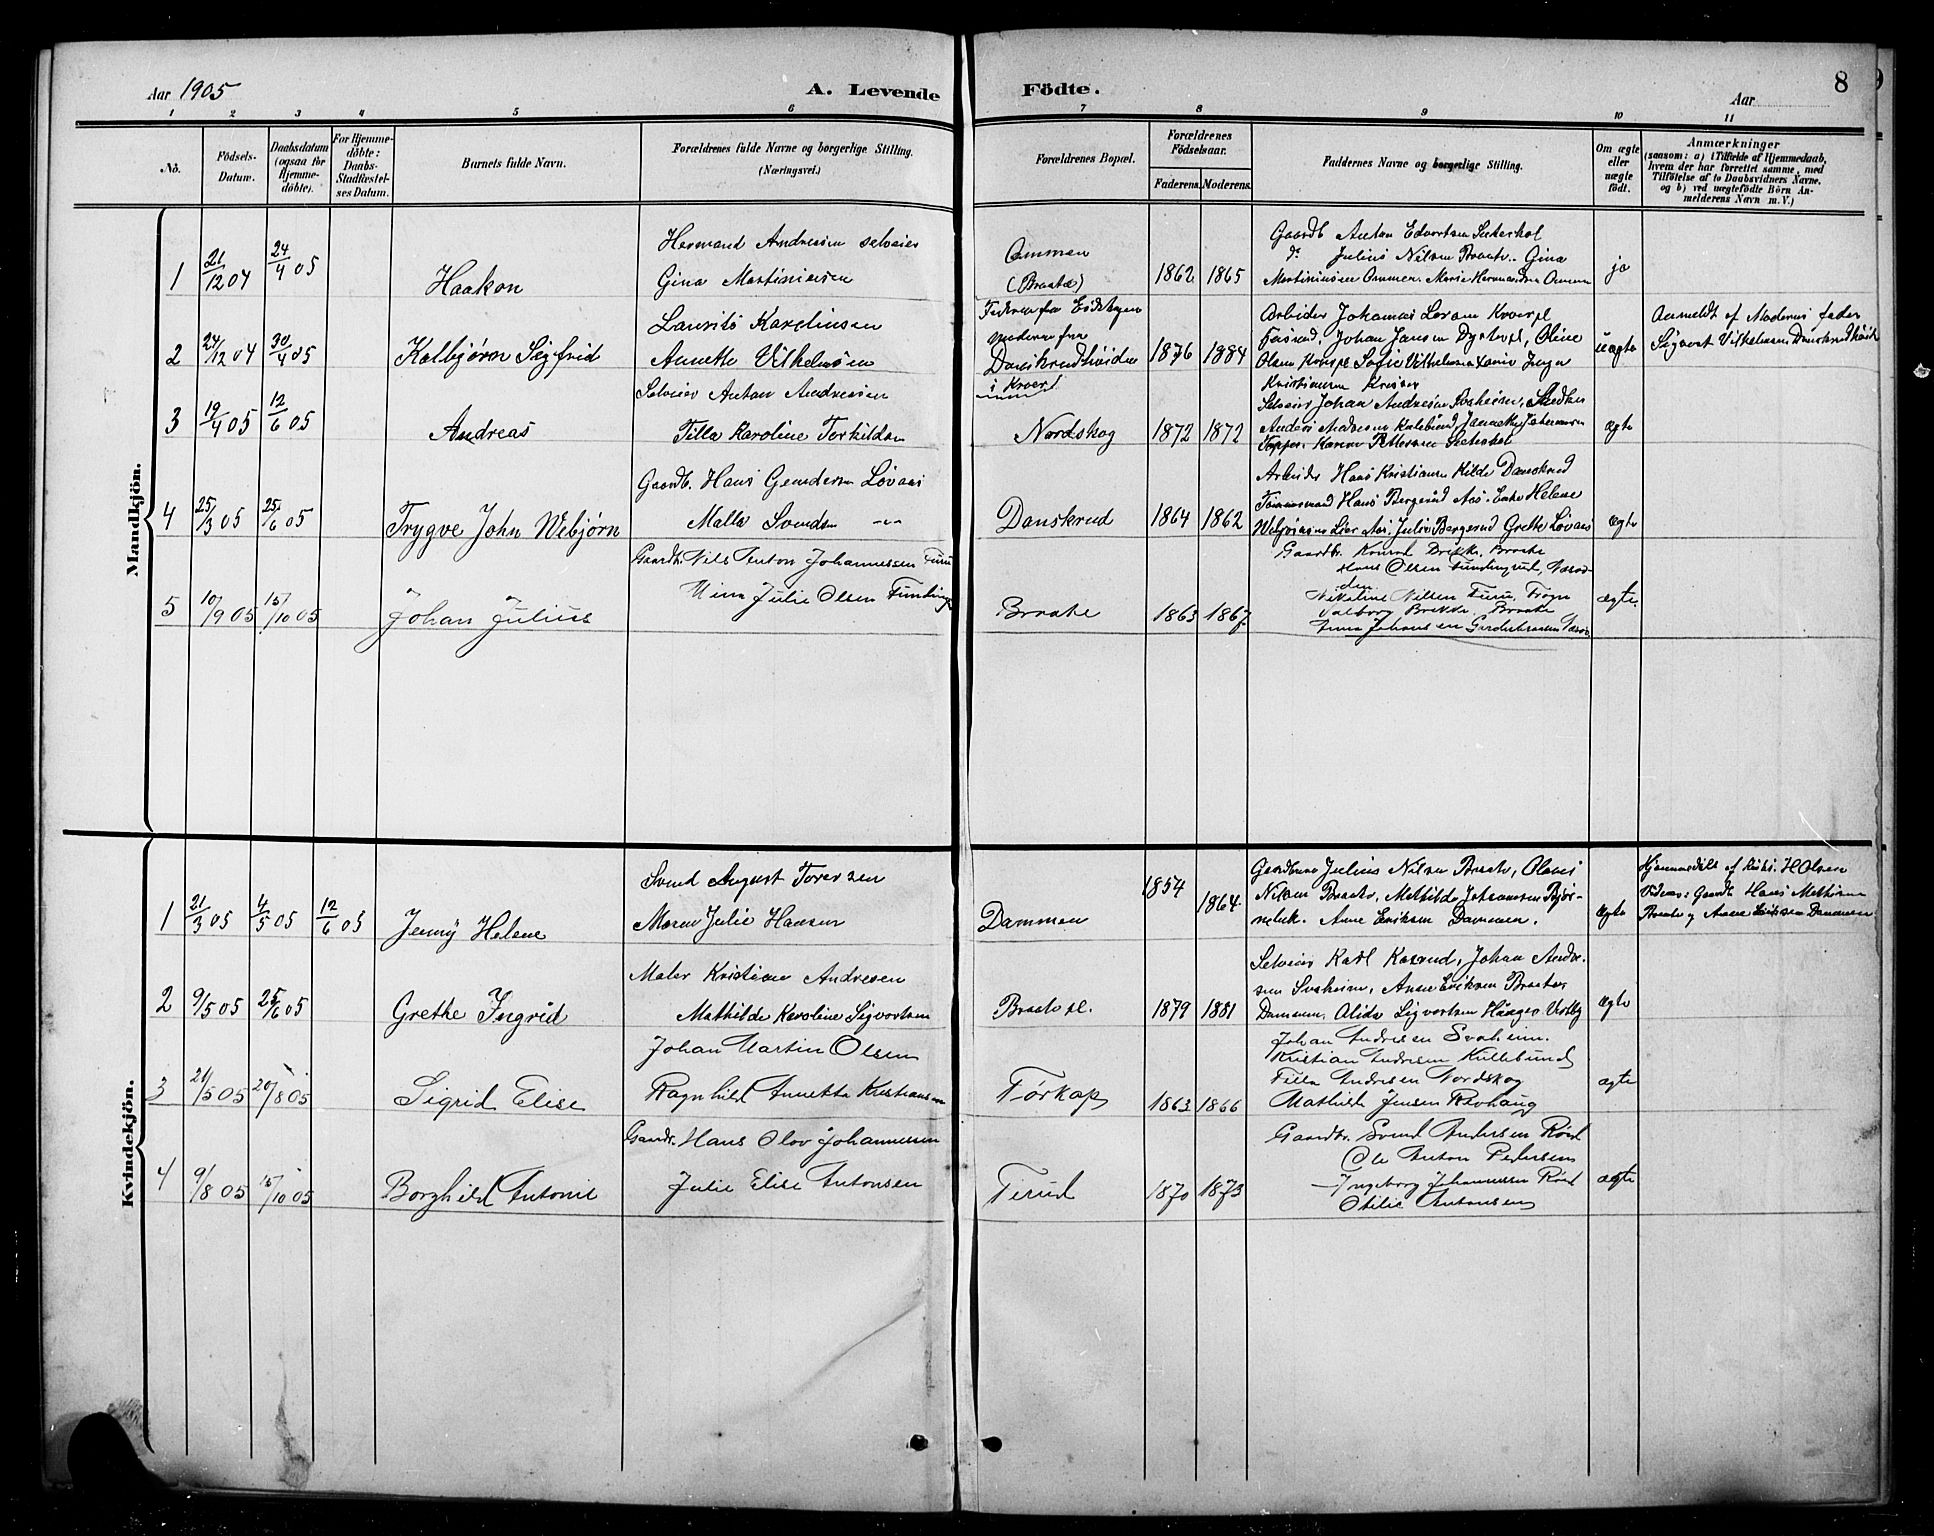 Aar 1905
A. Levende
Födte.
8
Aar
1 2 3 4 5 6 7 8 9 10 11
No.
Födsels-
Datum.
Daabsdatum
(ogsaa for
Hjemme-
döbte).
For Hjemme-
döbte:
Daabs-
Stadfæstel-
ses Datum.
Barnets fulde Navn.
Forældrenes fulde Navne og borgerlige Stilling.
(Næringsvei.)
Forældrenes Bopæl.
Forældrenes
Födselsaar.
Faderens.
Moderens.
Faddernes Navne og borgerlige Stilling.
Om ægte
eller
uægte
födt.
Anmærkninger
(saasom: a) i Tilfælde af Hjemmedaab,
hvem der har forrettet samme, med
Tilföielse af to Daabsvidners Navne,
og b) ved uægtefödte Börn An-
melderens Navn m. V.)
Mandkjön.
1 21/12 04 24/4 05 Haakon
Hermand Andresen selveier
Gina Martinsen
Ommen
(Braate)
1862 1865
Gaardb Anton Edvortsen Seterhol
do Julius Nilsen Braate. Gina
Martiniusen Ommen. Marie Hermandsen Ommen
ja
2 24/12 04 30/4 05 Kolbjørn Sigfrid
Laurits Karelinsen
Annette Vilhelmsen
Federen fra Eidskogen
moderen fra
Danskrudhøiden
i Kroer
1876 1884
Arbeider Johannes Loram Kroerpl
Johan Jansen Dystepl, Oline
Olsen Kroerpl Sofie Vilhelmsen
Kristiansen Kroer
uægte
Anmeldt af Moderns fader
Sigvart Vilhelmsen Danskrudhøid
3 19/4 05 12/6 05 Andreas
Selveier Anton Andresen
Tilla Karoline Torkildsen
Nordskog
1872 1872
Selveier Johan Andresen Svoheim, Snedker
Anders Andresen Kullebund
Topper. Karen Pettersen Seterhol
ægte
4 25/3 05 25/6 05 Trygve John Webjørn
Gaardb. Hans Gundersen Løvaas
Malla Svendsen -"-
Danskrud
1864 1862
Arbeider Hans Kristiansen Kilde Danskrud
Tømmermand Hans Bergerud Aas. Enke Helene
Webjørnsen Lier Aas, Julie Bergerud Grethe Løvaas
ægte
5 10/9 05 15/10 05 Johan Julius
Gaardb. Nils Anton Johannessen Furu
Nina Julie Olsen
Braate
1863 1867
Gaardbr. Konrad Brekke, Braate
Hans Olsen Fundingrud,
Nikoline Nilsen Furu, Frogn
Valborg Brekke, Braate
Anna Johansen
ægte.
Kvindekjön.
1 21/3 05 4/5 05 12/6 05 Jenny Helene
Svend August Toresen
Maren Julie Hansen
Dammen
1854
1864
Gaardbruger Julius Nilsen Braate, Olaus
Nilsen Braate, Mathilde Johannsen Bjør-
nebek. Anne Eriksen Dammen.
ægte
Hjemmedöbt af H Olsen
Vidner: Gaardb Hans Mathisen
Braate og Anne Eriksen Dammen
2 9/5 05 25/6 05 Grethe Ingrid
Maler Kristian Andresen
Mathilde Karoline Sigvartsen
Braatepl.
1879 1881
Selveier Karl Korsrud, Johan Andre-
sen Svoheim, Anne Eriksen Braate,
Dammen. Alida Sigvartsen Haugen Vestby
ægte
3 21/5 05 20/8 05 Sigrid Elise
Johan Martin Olsen
Ragnhild Annetta Kristiansen
Tørkop
1863 1866
Johan Andresen Svoheim.
Kristian Andresen Kullebund
Tilla Andresen Nordskog
Mathilde Jensen Revhaug
ægte
4 9/8 05 15/10 05 Borghild Antonie
Gaardbr. Hans Olov Johannessen
Julie Elise Antonsen
Tirud
1870 1873
Gaardbr. Svend Andersen Röed
Ole Anton Pedersen
Ingeborg Johannessen Röed
Otilie Antonsen
ægte